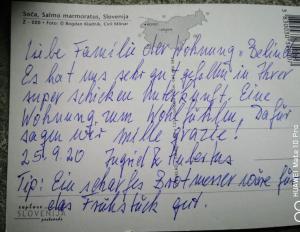 Soča, Salmo marmoratus, Slovenija
Z - 000 • Foto: © Bogdan Kladnik, Ciril Mlinar
Liebe Familie der Wohnung "Belina
Es hat uns sehr gut gefallen in Ihrer
super schicken Unterkunft. Eine
Wohnung zum Wohlfühlen, dafür
sagen wir mille grazie!
25.9.20 Ingrid & Hubertus
Tip: Ein scharfes Brotmesser wäre für
das Frühstück gut.
explore
SLOVENIJA
postcards
HUAWEI Mate 10 Pro